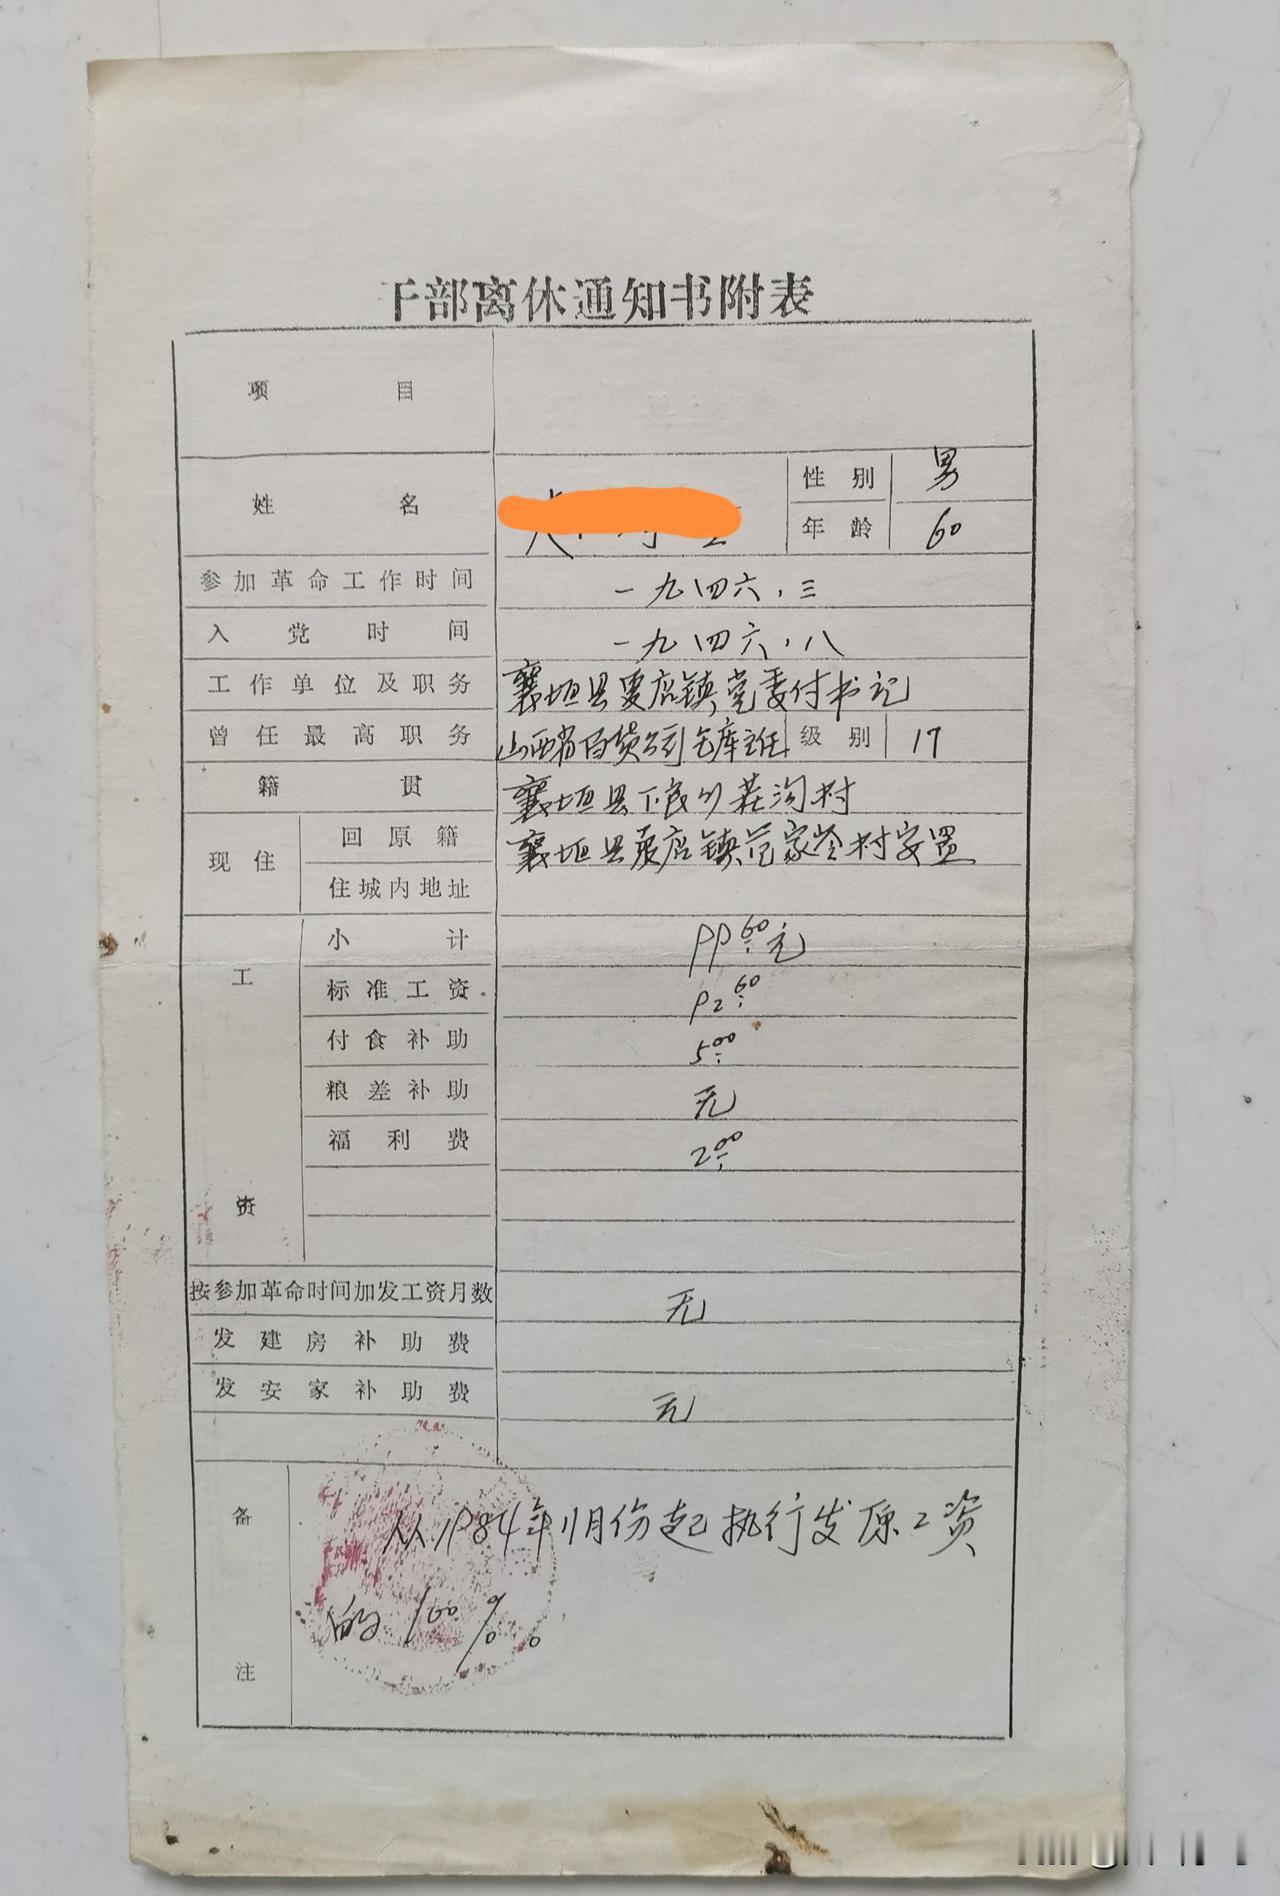 干部离休通知书附表
项目
姓名
性别 男
年龄 60
参加革命工作时间 一九四六.三
入党时间 一九四六.八
工作单位及职务 襄垣县夏店镇党委付书记
曾任最高职务 山西省百货公司仓库主任 级别 17
籍贯 襄垣县下良公社沟村
现住 回原籍 襄垣县夏店镇范家岭村安置
住城内地址
工资
小计 99.60元
标准工资 92.60
付食补助 5.00
粮差补助 无
福利费 2.00
按参加革命时间加发工资月数 无
发建房补助费
发安家补助费 无
备注 从1984年11月份起执行发原工资
的100%。